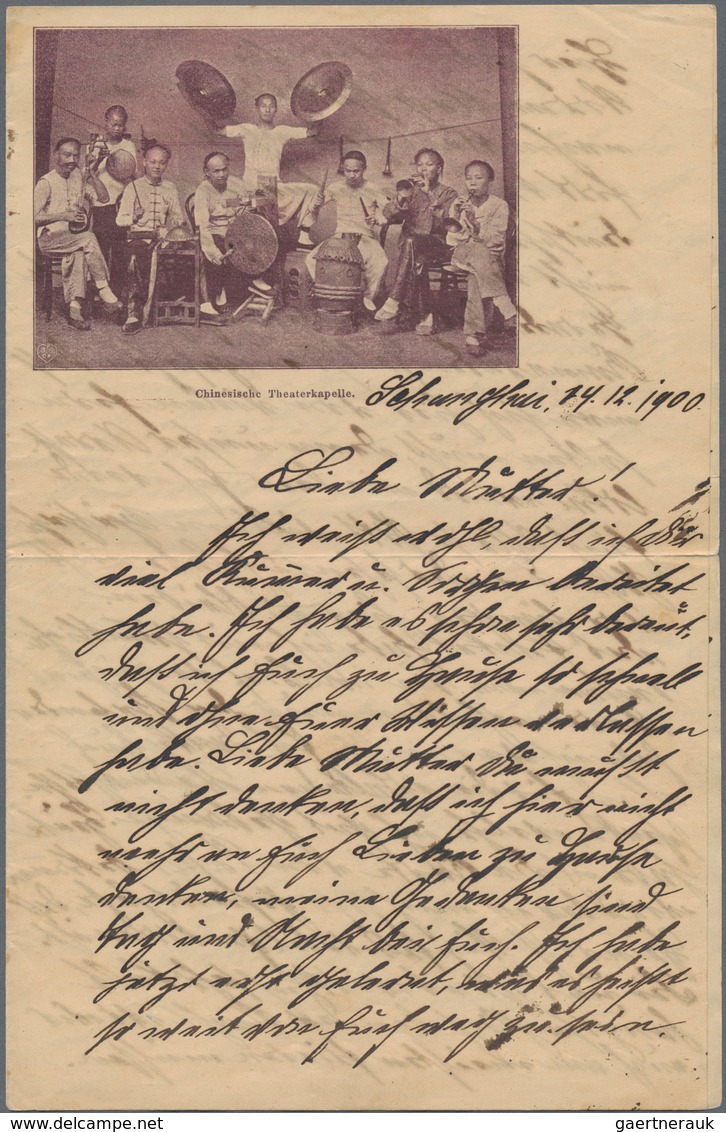 Chinesische Theaterkapelle.
Schanghai, 14.12.1900.
Liebe Mutter!
Ich weiß wohl, daß ich Dir
viel Kummer u. Sorgen bereitet
habe. Ich habe es schon sehr bereut,
daß ich Euch zu Hause so schnell
und ohne Euer Wissen verlassen
habe. Liebe Mutter Du mußt
nicht denken, daß ich hier nicht
mehr an Euch Lieben zu Hause
denke, meine Gedanken sind
Tag und Nacht bei Euch. Ich habe
jetzt erst gelernt, was es heißt
so weit von Euch weg zu sein.
delcampe.net
gaertnerauk